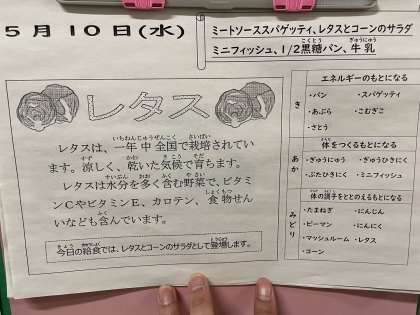 5月10日(水)
ミートソーススパゲッティ、レタスとコーンのサラダ
ミニフィッシュ、1/2黒糖パン、牛乳
レタス
レタスは、一年中全国で栽培されてい
ます。涼しく、乾いた気候で育ちます。
レタスは水分を多く含む野菜で、ビタミ
ンCやビタミンE、カロテン、食物せん
いなども含んでいます。
今日の給食では、レタスとコーンのサラダとして登場します。
エネルギーのもとになる
き
・パン ・スパゲッティ
・あぶら ・こむぎこ
・さとう
体をつくるもとになる
あか
・ぎゅうにゅう ・ぎゅうひきにく
・ぶたひきにく ・ミニフィッシュ
体の調子をととのえるもとになる
みどり
・たまねぎ ・にんじん
・ピーマン ・にんにく
・マッシュルーム ・レタス
・コーン